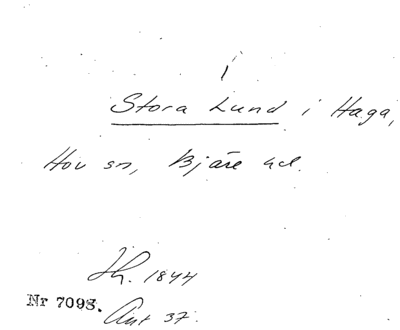 Stora Lund i Haga,
Hov sn, Bjäre hd.
Th. 1844
Nr 7098.
Ant 37.